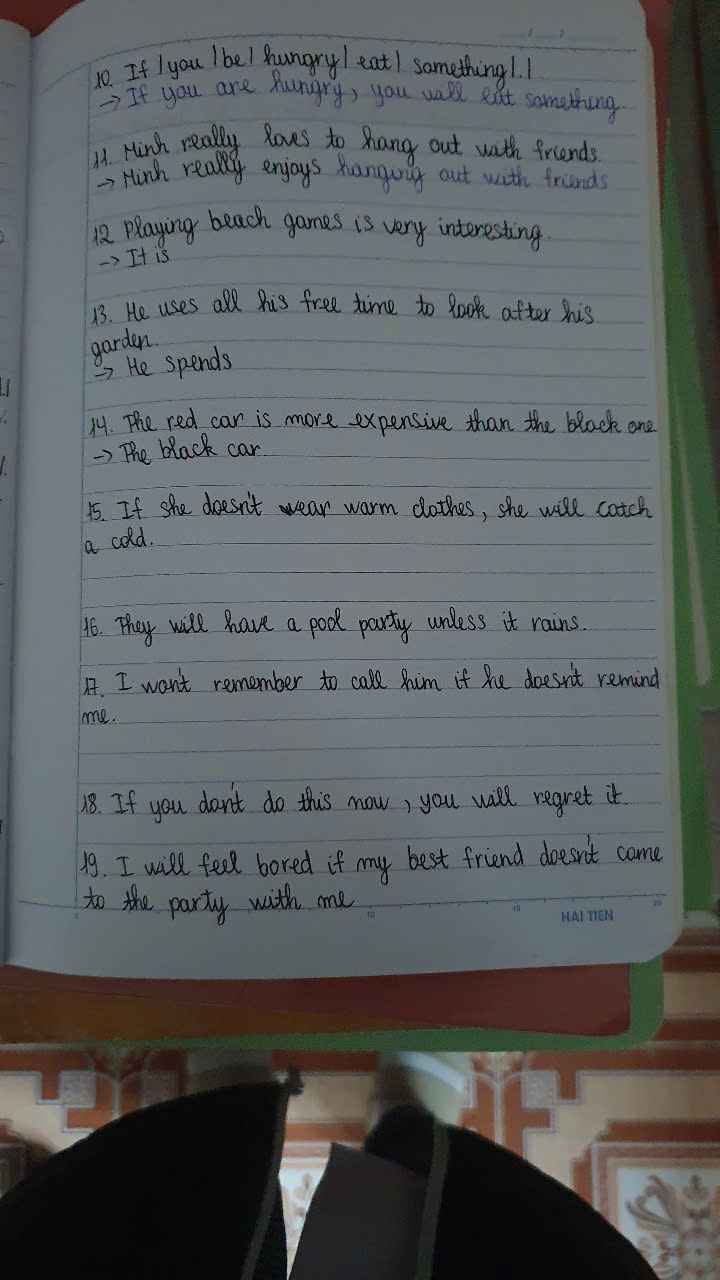 10. If / you / be / hungry / eat / something / . /
-> If you are hungry, you will eat something.
11. Minh really loves to hang out with friends.
-> Minh really enjoys hanging out with friends
12 Playing beach games is very interesting.
-> It is
13. He uses all his free time to look after his
garden.
-> He spends
14. The red car is more expensive than the black one
-> The black car
15. If she doesn't wear warm clothes, she will catch
a cold.
16. They will have a pool party unless it rains.
17. I won't remember to call him if he doesn't remind
me.
18. If you don't do this now, you will regret it
19. I will feel bored if my best friend doesn't come
to the party with me
5 10 15 20
HAI TIEN